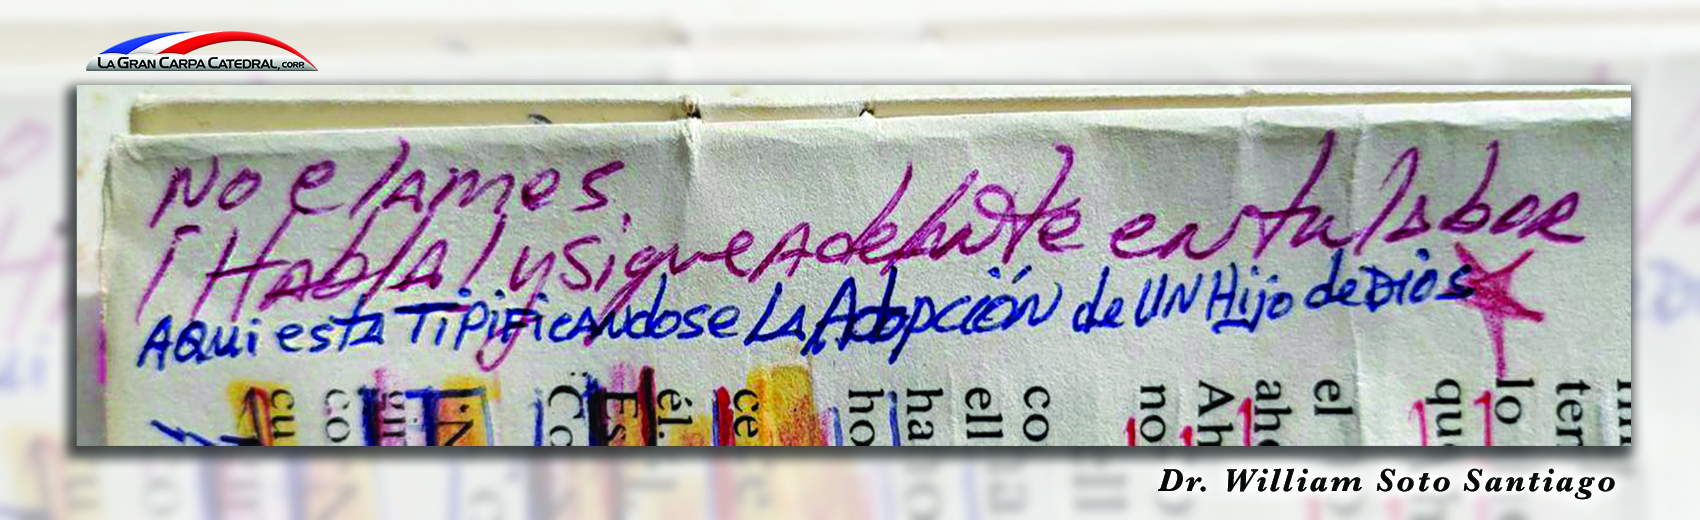 LA GRAN CARPA CATEDRAL, CORP.
No clames.
¡Habla! y sigue Adelante en tu labor
AQui esta TiPificANdose LA Adopción de UN Hijo de Dios
cu
co
Co
Es
él.
ce
ho
ha
ell
co
no
Ah
aho
el
que
lo
ter
Dr. William Soto Santiago